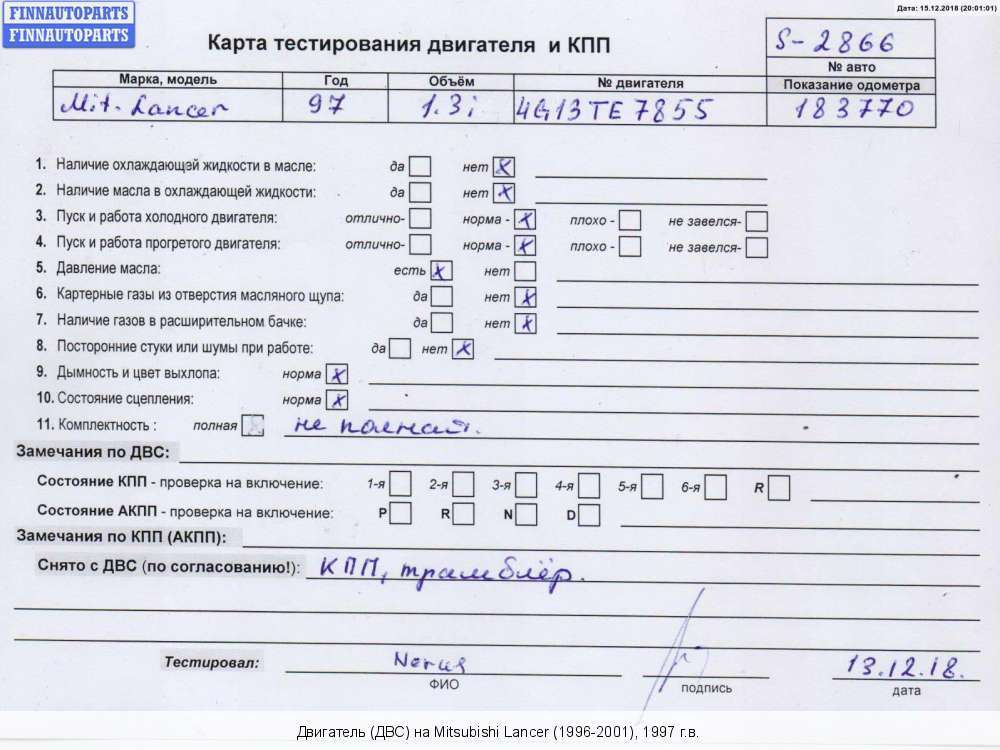 FINNAUTOPARTS
FINNAUTOPARTS
Дата: 15.12.2018 (20:01:01)
Карта тестирования двигателя и КПП
S-2866
№ авто
Марка, модель Год Объём № двигателя Показание одометра
Mit. Lancer 97 1.3i 4G13TE7855 183770
1. Наличие охлаждающей жидкости в масле: да нет x
2. Наличие масла в охлаждающей жидкости: да нет x
3. Пуск и работа холодного двигателя: отлично- норма - x плохо - не завелся-
4. Пуск и работа прогретого двигателя: отлично- норма - x плохо - не завелся-
5. Давление масла: есть x нет
6. Картерные газы из отверстия масляного щупа: да нет x
7. Наличие газов в расширительном бачке: да нет x
8. Посторонние стуки или шумы при работе: да нет x
9. Дымность и цвет выхлопа: норма x
10. Состояние сцепления: норма x
11. Комплектность : полная не полная.
Замечания по ДВС:
Состояние КПП - проверка на включение: 1-я 2-я 3-я 4-я 5-я 6-я R
Состояние АКПП - проверка на включение: P R N D
Замечания по КПП (АКПП):
Снято с ДВС (по согласованию!): КПП, трамблёр.
Тестировал: 13.12.18.
ФИО подпись дата
Двигатель (ДВС) на Mitsubishi Lancer (1996-2001), 1997 г.в.